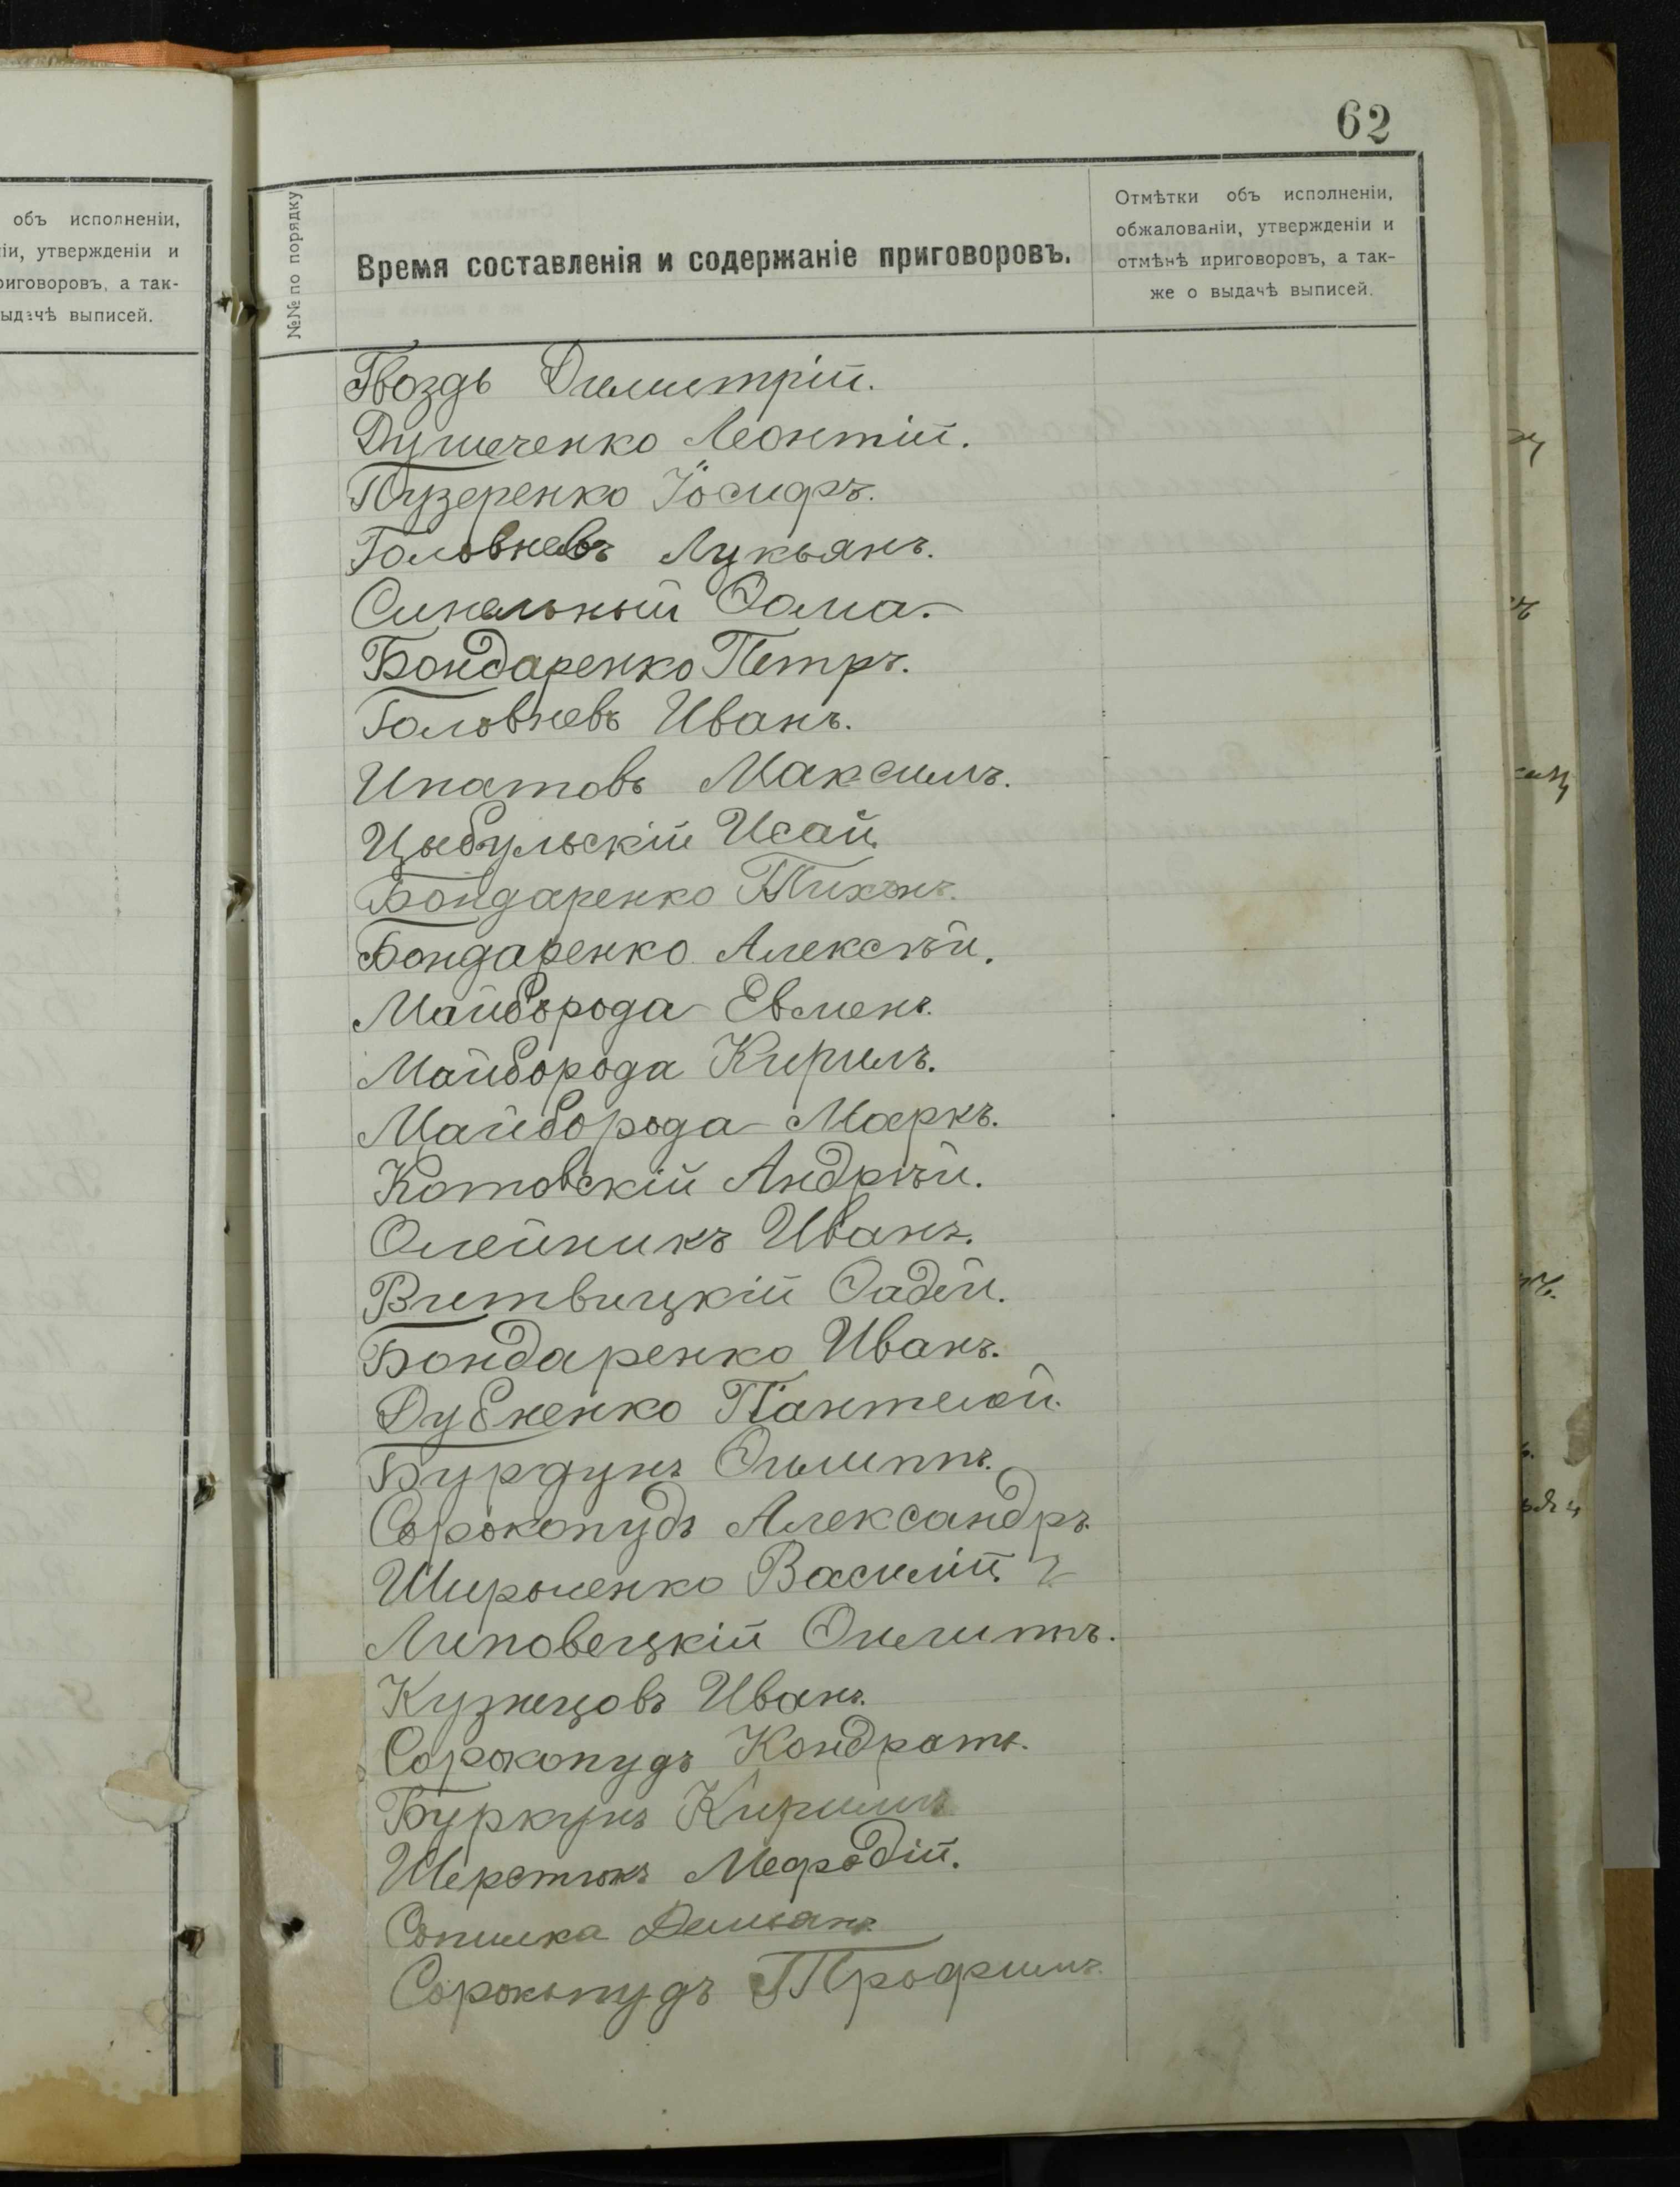 62
объ исполненіи,
іи, утвержденіи и
риговоровъ, а так-
ыдачѣ выписей.
№№ по порядку
Время составленія и содержаніе приговоровъ.
Отмѣтки объ исполненіи,
обжалованіи, утвержденіи и
отмѣнѣ приговоровъ, а так-
же о выдачѣ выписей.
Гвоздь Димитрій.
Душеченко Леонтій.
Пузеренко Іосифъ.
Головневъ Лукьянъ.
Синельный Ѳома.
Бондаренко Петръ.
Головневъ Иванъ.
Ипатовъ Максимъ.
Цыбульскій Исай.
Бондаренко Тихонъ.
Бондаренко Алексѣй.
Майборода Евменъ.
Майборода Кирилъ.
Майборода Маркъ.
Котовскій Андрѣй.
Олейникъ Иванъ.
Витвицкій Ѳадей.
Бондаренко Иванъ.
Дубненко Пантелей.
Бурдунъ Ѳилиппъ.
Сорокопудъ Александръ.
Василій.
Липовецкій Ѳилиппъ.
Кузнецовъ Иванъ.
Сорокопудъ Кондратъ.
Буркунъ Кирилъ
Шерстюкъ Мефодій.
Сопилка Демьянъ.
Сорокопудъ Трофимъ.